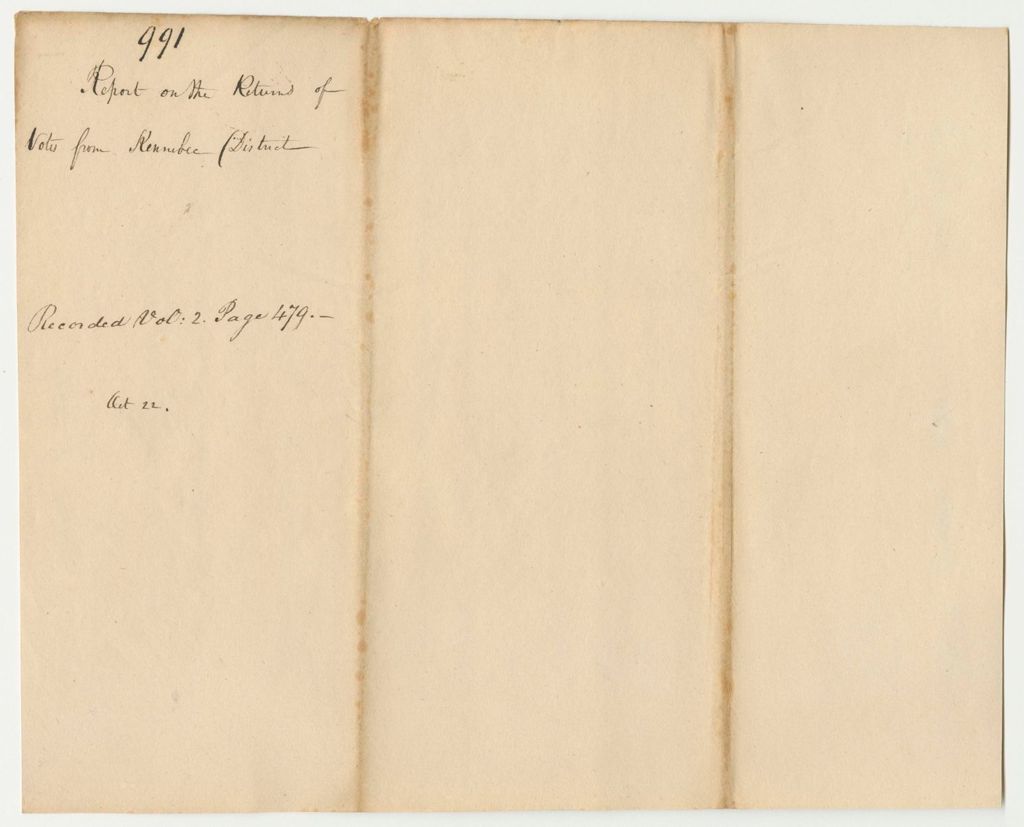 991
Report on the Returns of
Votes from Kennebec District
Recorded Vol: 2. Page 479.—
Oct 22.